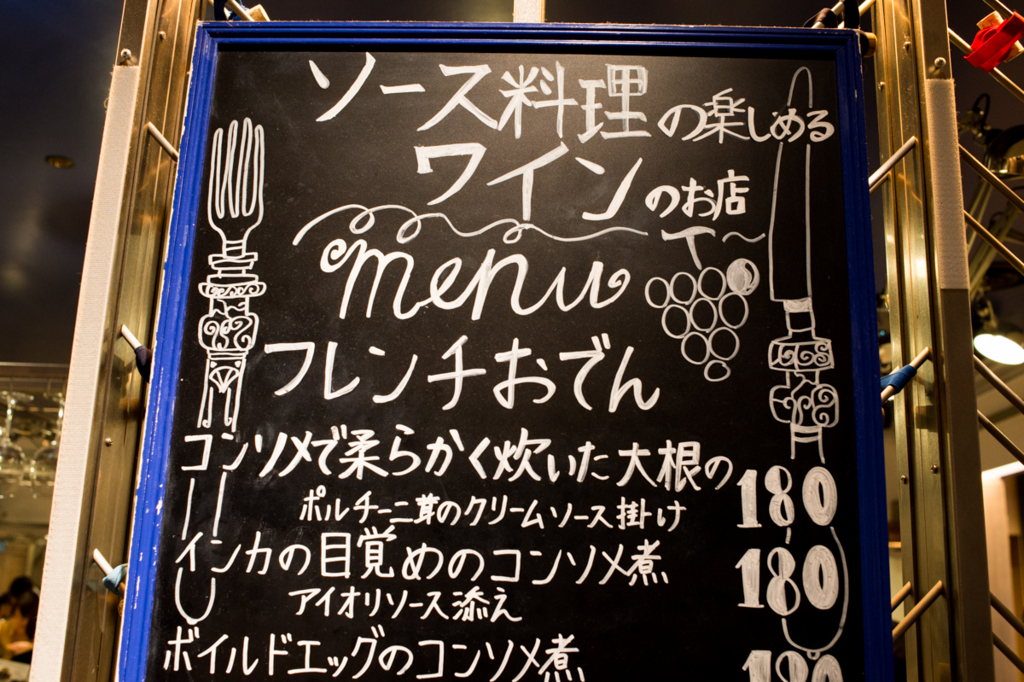 ソース料理の楽しめる
ワインのお店
menu
フレンチおでん
コンソメで柔らかく炊いた大根の 180
ポルチーニ茸のクリームソース掛け
インカの目覚めのコンソメ煮 180
アイオリソース添え
ボイルドエッグのコンソメ煮 180